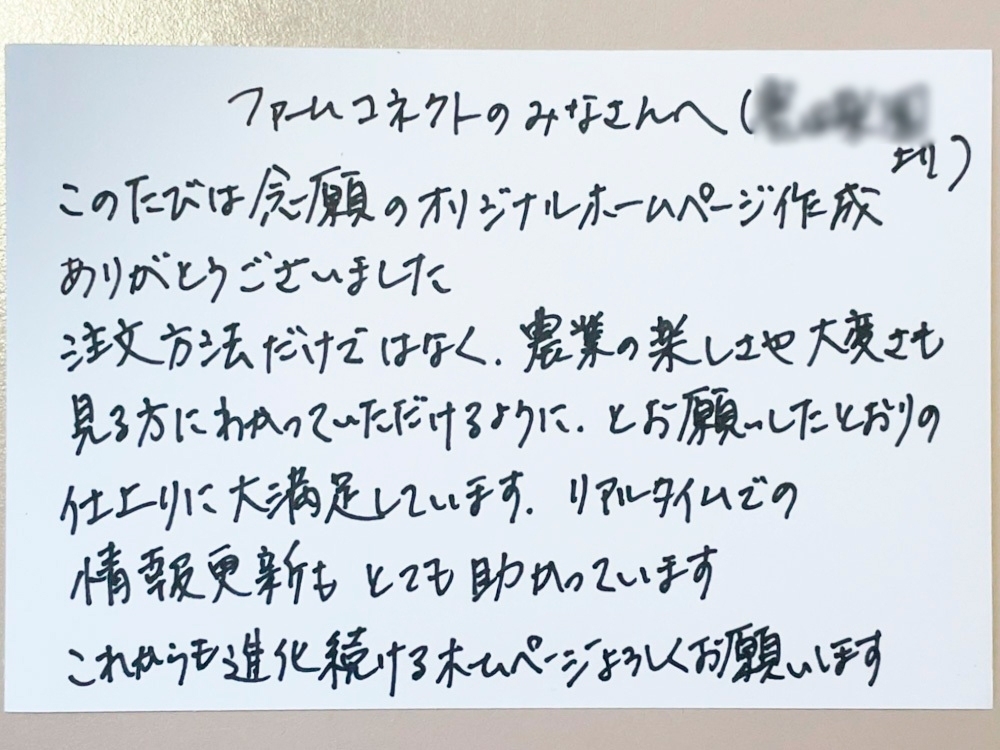 ファームコネクトのみなさんへ(
より)
このたびは念願のオリジナルホームページ作成
ありがとうございました
注文方法だけではなく、農業の楽しさや大変さも
見る方にわかっていただけるように、とお願いしたとおりの
仕上りに大満足しています。リアルタイムでの
情報更新もとても助かっています
これからも進化続けるホームページよろしくお願いします